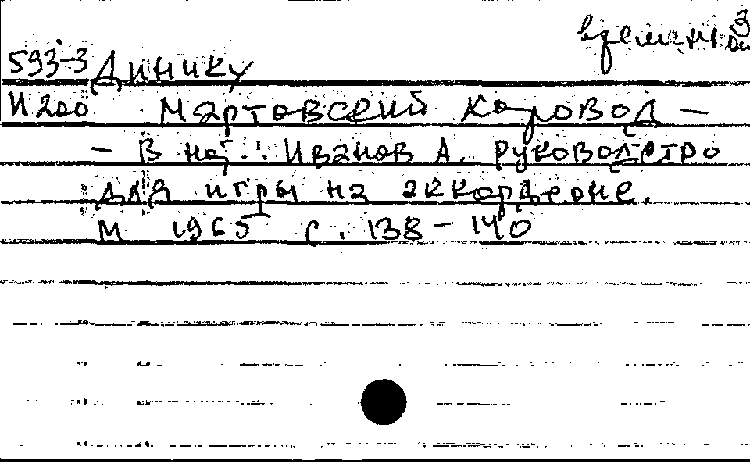 временный
3
593-3 Динику
И200 Мартовский хоровод —
— В кн.: Иванов А. Руководство
для игры на аккордеоне.
М 1965 с. 138-140